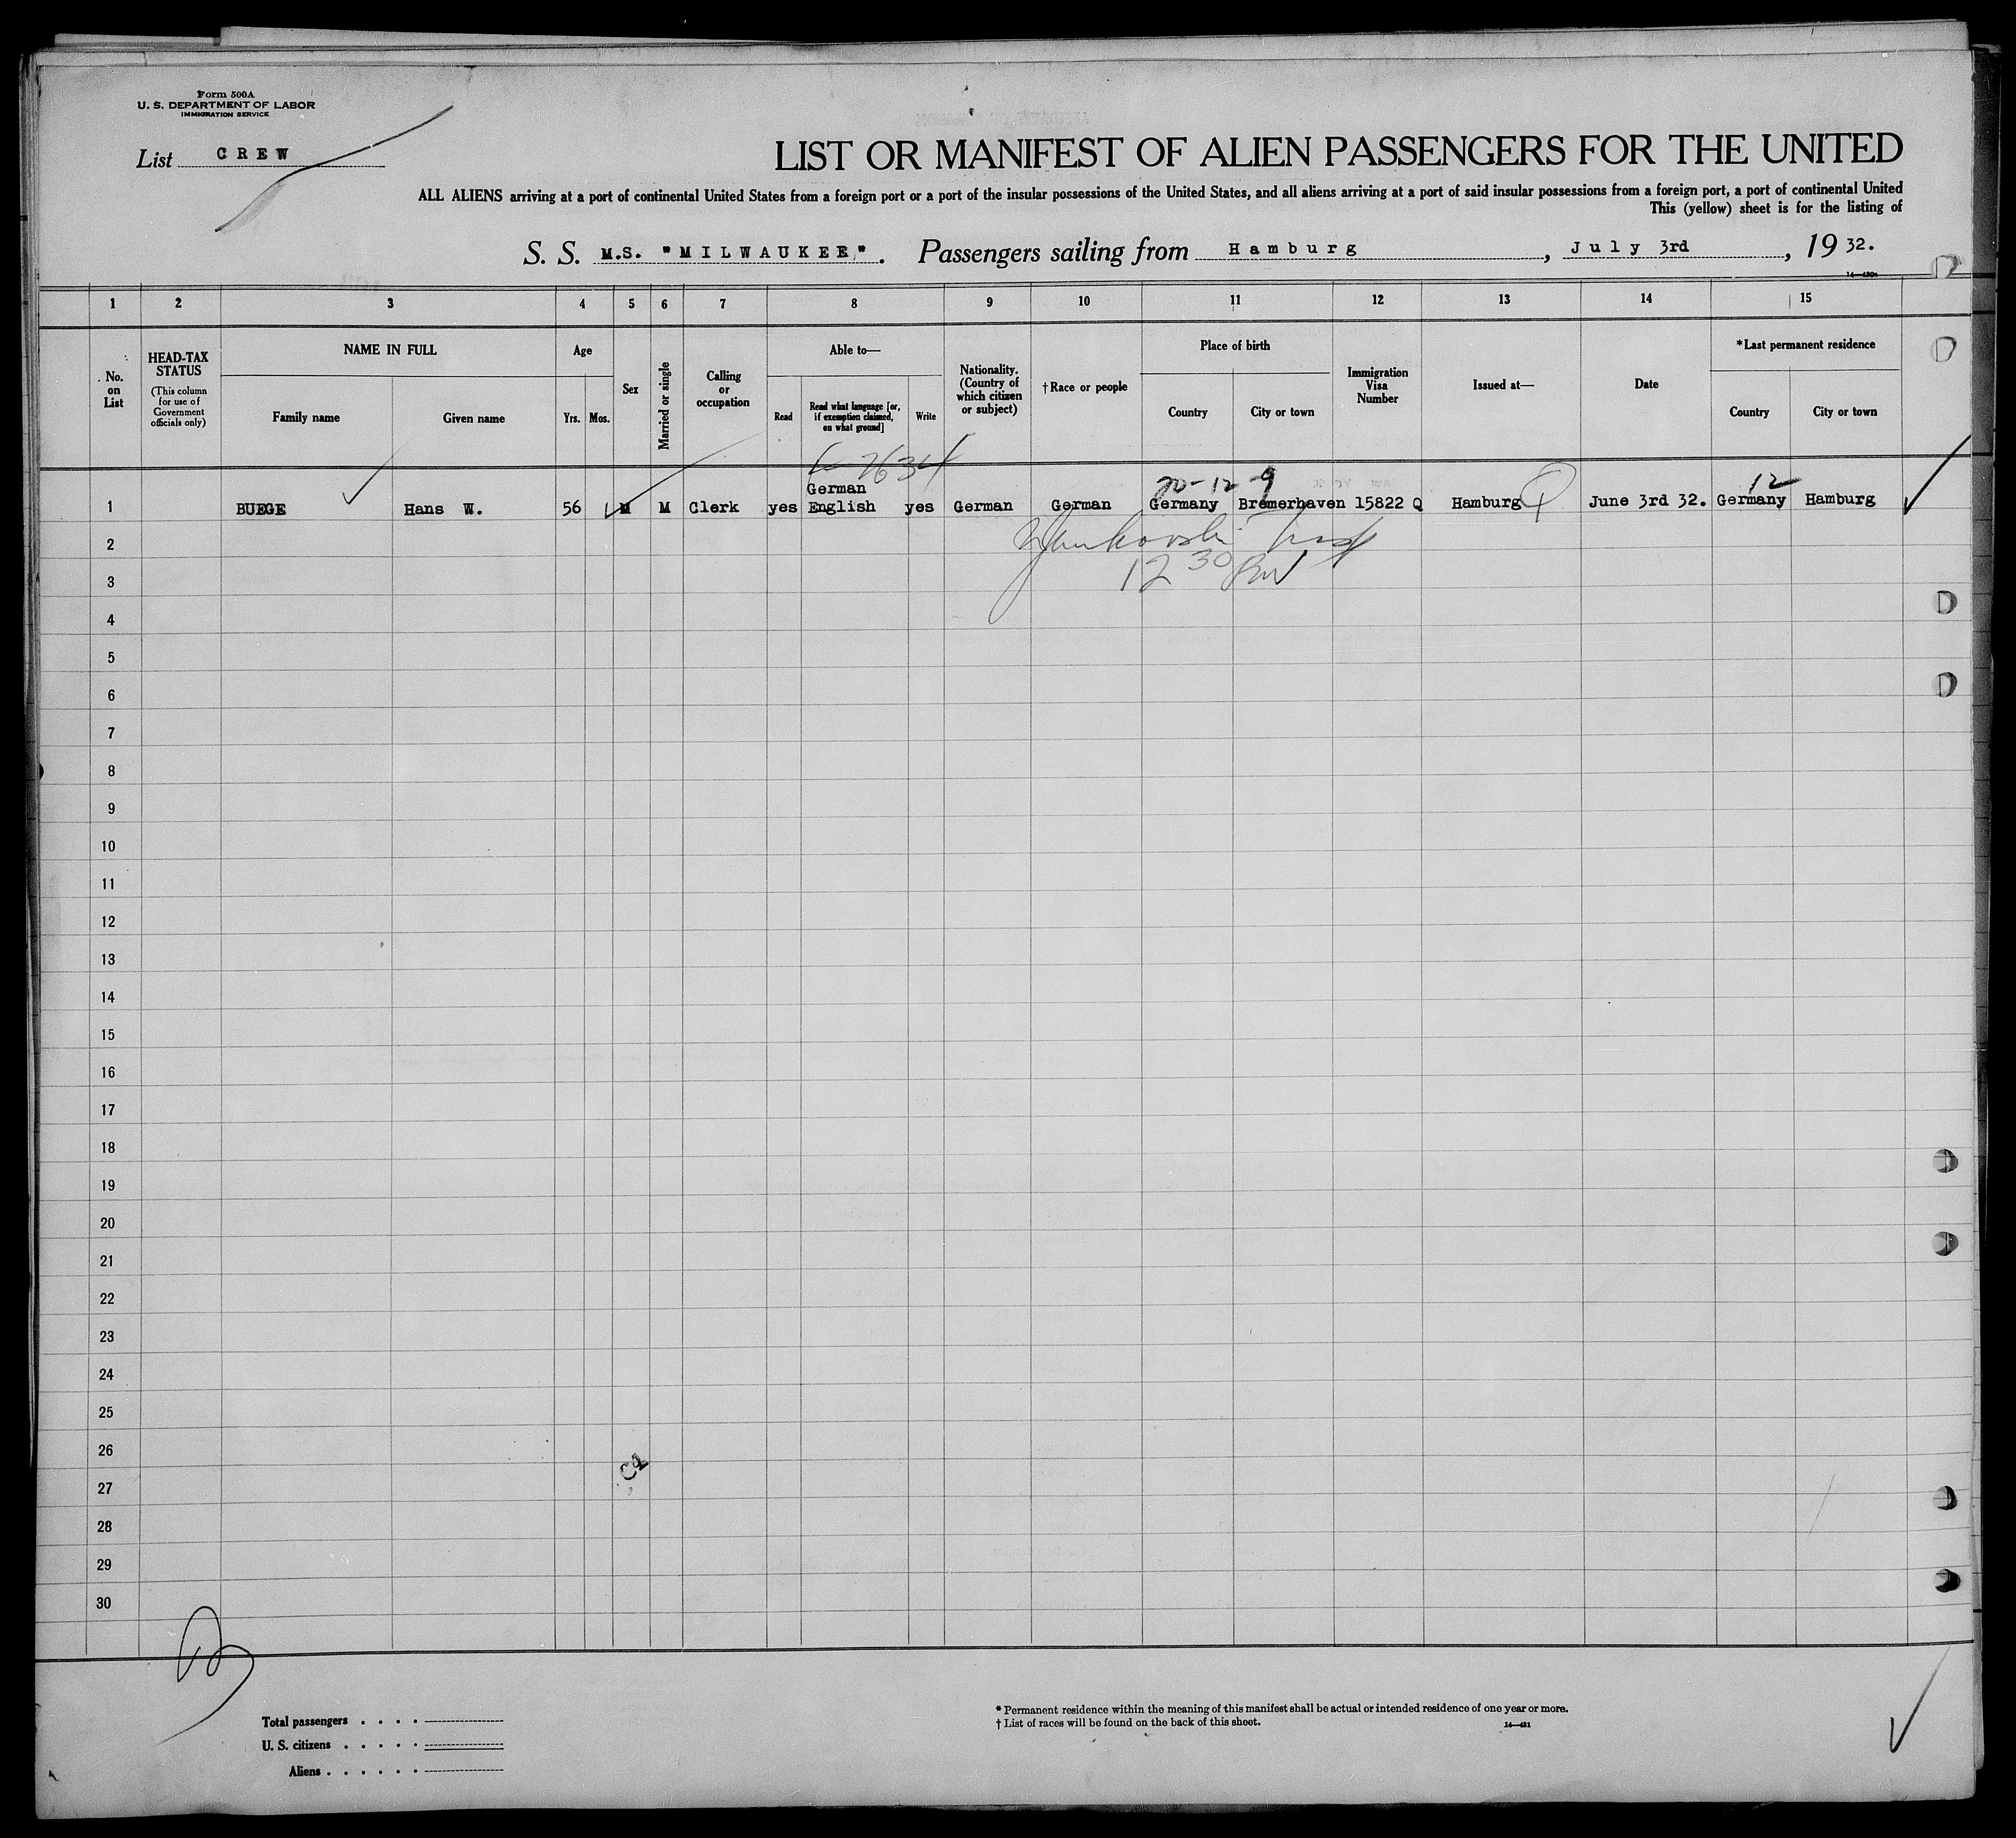 Form 500A
U. S. DEPARTMENT OF LABOR
IMMIGRATION SERVICE
List CREW
LIST OR MANIFEST OF ALIEN PASSENGERS FOR THE UNITED
ALL ALIENS arriving at a port of continental United States from a foreign port or a port of the insular possessions of the United States, and all aliens arriving at a port of said insular possessions from a foreign port, a port of continental United
This (yellow) sheet is for the listing of
S. S. M.S. "MILWAUKEE". Passengers sailing from Hamburg, July 3rd, 19 32.
1 2 3 4 5 6 7 8 9 10 11 12 13 14 15
No. on List
HEAD-TAX STATUS
(This column for use of Government officials only)
NAME IN FULL
Family name
Given name
Age
Yrs. Mos.
Sex
Married or single
Calling or occupation
Able to—
Read
Read what language [or, if exemption claimed, on what ground]
Write
Nationality. (Country of which citizen or subject)
†Race or people
Place of birth
Country
City or town
Immigration Visa Number
Issued at—
Date
*Last permanent residence
Country
City or town
7634
20-12-9
12
German
1 BUEGE Hans W. 56 M M Clerk yes English yes German German Germany Bremerhaven 15822 Q Hamburg June 3rd 32. Germany Hamburg
2
12 30
3
4
5
6
7
8
9
10
11
12
13
14
15
16
17
18
19
20
21
22
23
24
25
26
27
28
29
30
Total passengers . . . .
U. S. citizens . . . . .
Aliens . . . . . .
* Permanent residence within the meaning of this manifest shall be actual or intended residence of one year or more.
† List of races will be found on the back of this sheet.